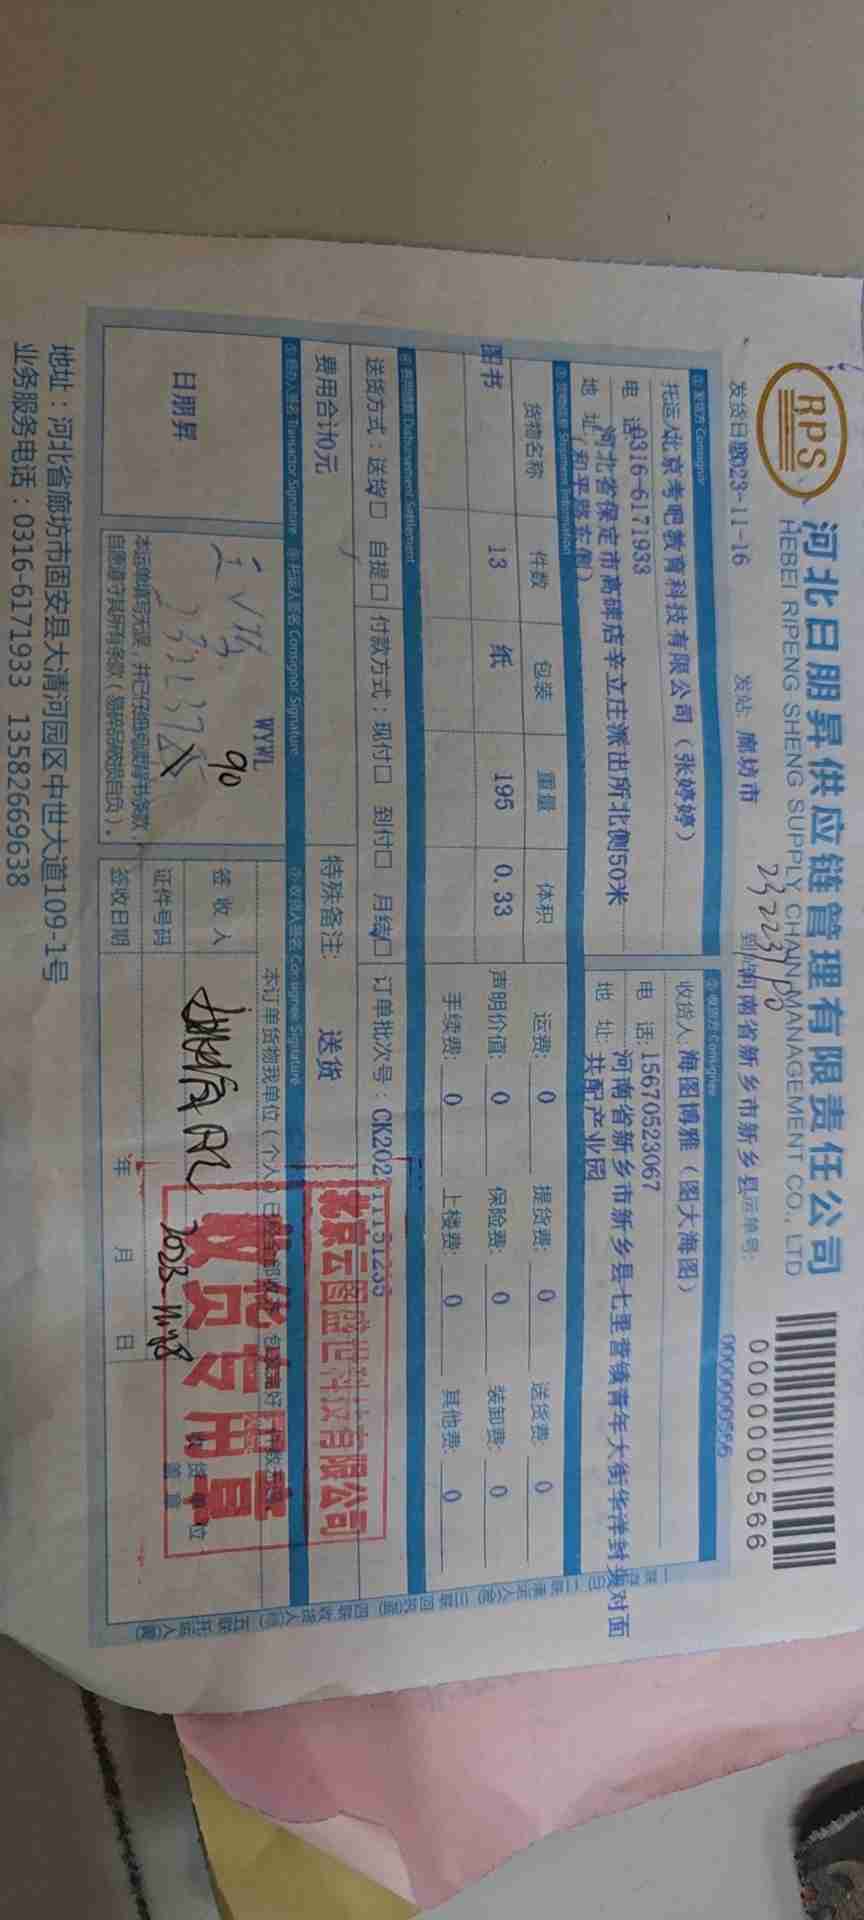 RPS
河北日朋昇供应链管理有限责任公司
HEBEI RIPENG SHENG SUPPLY CHAIN MANAGEMENT CO., LTD
0000000566
发货日期 2023-11-16 发站: 廊坊市 到站: 河南省新乡市新乡县 运单号: 0000000566
①发货方 Consignor ②收货方 Consignee
托运人 北京考吧教育科技有限公司（张婷婷） 收货人: 海图博雅（图大海图）
电 话 0316-6171933 电 话: 15670523067
地 址: 河北省保定市高碑店辛立庄派出所北侧50米（和平路东侧） 地 址: 河南省新乡市新乡县七里营镇青年大街华洋封头对面共配产业园
③货物信息 Shipment Information
货物名称 件数 包装 重量 体积 运费: 0 提货费: 0 送货费: 0
图书 13 纸 195 0.33 声明价值: 0 保险费: 0 装卸费: 0
手续费: 0 上楼费: 0 其他费: 0
④费用结算 Disbursement Settlement
送货方式：送货□ 自提□ 付款方式：现付□ 到付□ 月结□ 订单批次号：CK202
费用合计0元 特殊备注: 送货
⑤经办人签名 Transactor Signature ⑥托运人签名 Consignor Signature ⑦收货人签名 Consignee Signature
日朋昇
WYWL
90
本订单货物我单位（个人）已
签 收 人
证件号码
签收日期 年 月 日
2023
收货单位
盖章
北京云图盛世科技有限公司
收货专用章
地址：河北省廊坊市固安县大清河园区中世大道109-1号
业务服务电话：0316-6171933 13582669638